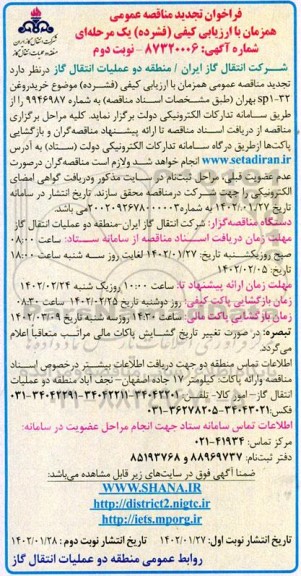 فراخوان تجدید مناقصه عمومی
همزمان با ارزیابی کیفی (فشرده) یک مرحله‌ای
شماره آگهی: ۸۷۳۲۰۰۰۶ - نوبت دوم
شرکت انتقال گاز ایران
منطقه دو عملیات
شرکت انتقال گاز ایران / منطقه دو عملیات انتقال گاز درنظر دارد
تجدید مناقصه عمومی همزمان با ارزیابی کیفی (فشرده) موضوع خریدروغن
sp۱-۳۲ بهران (طبق مشخصات اسناد مناقصه) به شماره ۹۹۴۶۹۸۷ را از
طریق سامانه تدارکات الکترونیکی دولت برگزار نماید. کلیه مراحل برگزاری
مناقصه از دریافت اسناد مناقصه تا ارائه پیشنهاد مناقصه‌گران و بازگشایی
پاکت‌ها ازطریق درگاه سامانه تدارکات الکترونیکی دولت (ستاد) به آدرس
www.setadiran.ir انجام خواهد شد ولازم است مناقصه‌گران درصورت
عدم عضویت قبلی مراحل ثبت‌نام در سایت مذکور ودریافت گواهی امضای
الکترونیکی را جهت شرکت درمناقصه محقق سازند. تاریخ انتشار در سامانه
تاریخ ۱۴۰۲/۰۱/۲۷ به شماره ۲۰۰۲۰۹۲۶۷۸۰۰۰۰۰۳ می باشد.
دستگاه مناقصه‌گزار: شرکت انتقال گاز ایران-منطقه دو عملیات انتقال گاز
مهلت زمان دریافت اسناد مناقصه از سامانه ستاد: ساعت ۰۸:۰۰
صبح روزیکشنبه تاریخ: ۱۴۰۲/۰۱/۲۷ لغایت روز سه شنبه ساعت ۱۸:۰۰
تاریخ: ۱۴۰۲/۰۲/۰۵
مهلت زمان ارائه پیشنهاد تا: ساعت ۱۰:۰۰ روزیک شنبه ۱۴۰۲/۰۲/۲۴
زمان بازگشایی پاکت کیفی: روز دوشنبه تاریخ ۱۴۰۲/۰۲/۲۵ ساعت ۰۸:۳۰
زمان بازگشایی پاکت مالی: ساعت ۱۴:۳۰ روز سه شنبه تاریخ ۱۴۰۲/۰۳/۰۹
تبصره: در صورت تغییر تاریخ گشایش پاکات مالی مراتب متعاقبا اعلام
می‌گردد.
اطلاعات تماس منطقه دو جهت دریافت اطلاعات بیشتر درخصوص اسناد
مناقصه وارائه پاکات: کیلومتر ۱۷ جاده اصفهان- نجف آباد منطقه دو عملیات
انتقال گاز- امور کالا- تلفن:
فکس: ۳۴۰۴۳۰۲۱-۰۳۱
اطلاعات تماس سامانه ستاد جهت انجام مراحل عضویت در سامانه:
مرکز تماس: ۴۱۹۳۴-۰۲۱
دفتر ثبت‌نام: ۸۸۹۶۹۷۳۷ و ۸۵۱۹۳۷۶۸
ضمنا آگهی فوق در سایت‌های زیر قابل مشاهده می‌باشد:
WWW.SHANA.IR
http://district2.nigtc.ir
http://iets.mporg.ir
تاریخ انتشار نوبت اول: ۱۴۰۲/۰۱/۲۷ تاریخ انتشار نوبت دوم: ۱۴۰۲/۰۱/۲۸
روابط عمومی منطقه دو عملیات انتقال گاز